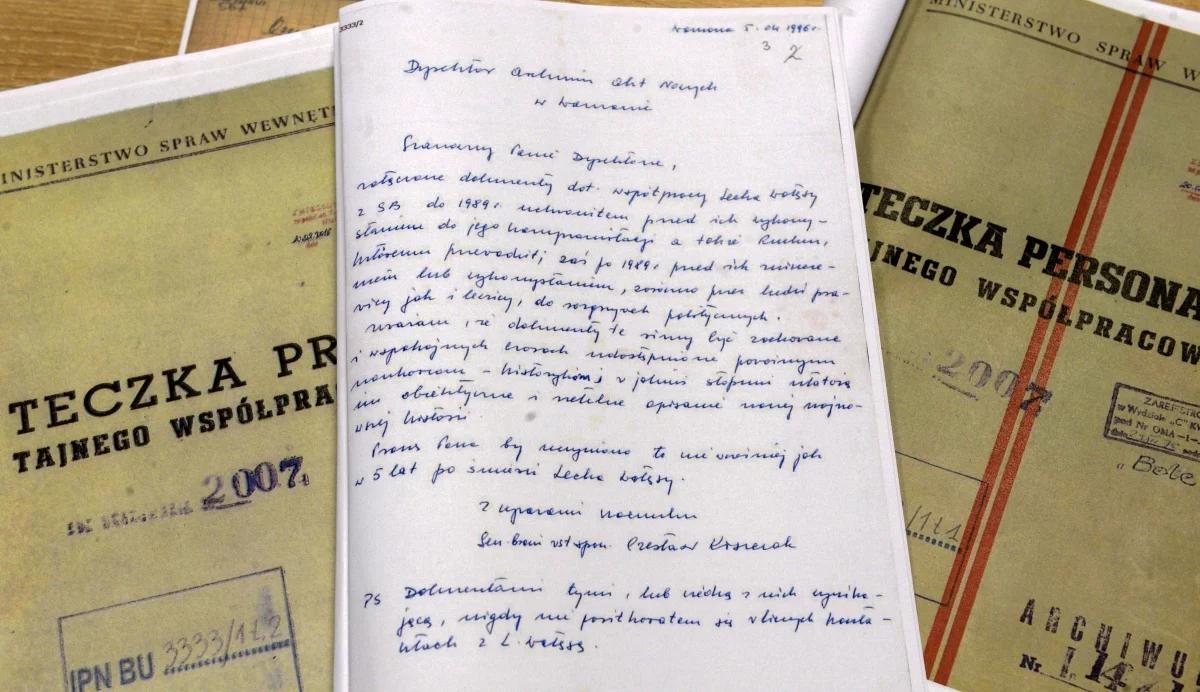 MINISTERSTWO SPRAW WEWNĘT
TECZKA PR
TAJNEGO WSPÓŁPRA
2007
IPN BU 3333/1t.2
3333/2
Warszawa 5. 04 1996 r.
3 2
Dyrektor Archiwum Akt Nowych
w Warszawie
Szanowny Panie Dyrektorze,
załączone dokumenty dot. współpracy Lecha Wałęsy
z SB do 1989 r. uchroniłem przed ich wykorzy-
staniem do jego kompromitacji a także Ruchu,
któremu przewodził; zaś po 1989 r. przed ich zniszcze-
niem lub wykorzystaniem, zarówno przez ludzi pra-
wicy jak i lewicy, do rozgrywek politycznych.
Uważam, że dokumenty te winny być zachowane
i w spokojnych czasach udostępnione poważnym
naukowcom – historykom i w jakimś stopniu ułatwią
im obiektywne i rzetelne opisanie naszej najno-
wszej historii.
Proszę Pana by uczyniono to nie wcześniej jak
w 5 lat po śmierci Lecha Wałęsy.
Z wyrazami szacunku
Gen. broni w st. spocz. Czesław Kiszczak
PS Dokumentami tymi, lub wiedzą z nich wynika-
jącą, nigdy nie posiłkowałem się w licznych konta-
ktach z L. Wałęsą.
MINISTERSTWO SPRAW W
TECZKA PERSONA
JNEGO WSPÓŁPRACOW
2007
ZAREJESTRO
w Wydziale „C” KW
pod Nr OMA-1-
„Bole
/1t.1
ARCHIWU
Nr I.14